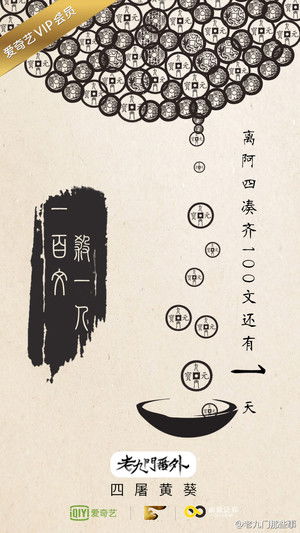 爱奇艺VIP会员
离阿四凑齐100文还有一天
一百文
殺一人
老九門番外
四屠黄葵
iQIYI 爱奇艺
@老九门那些事